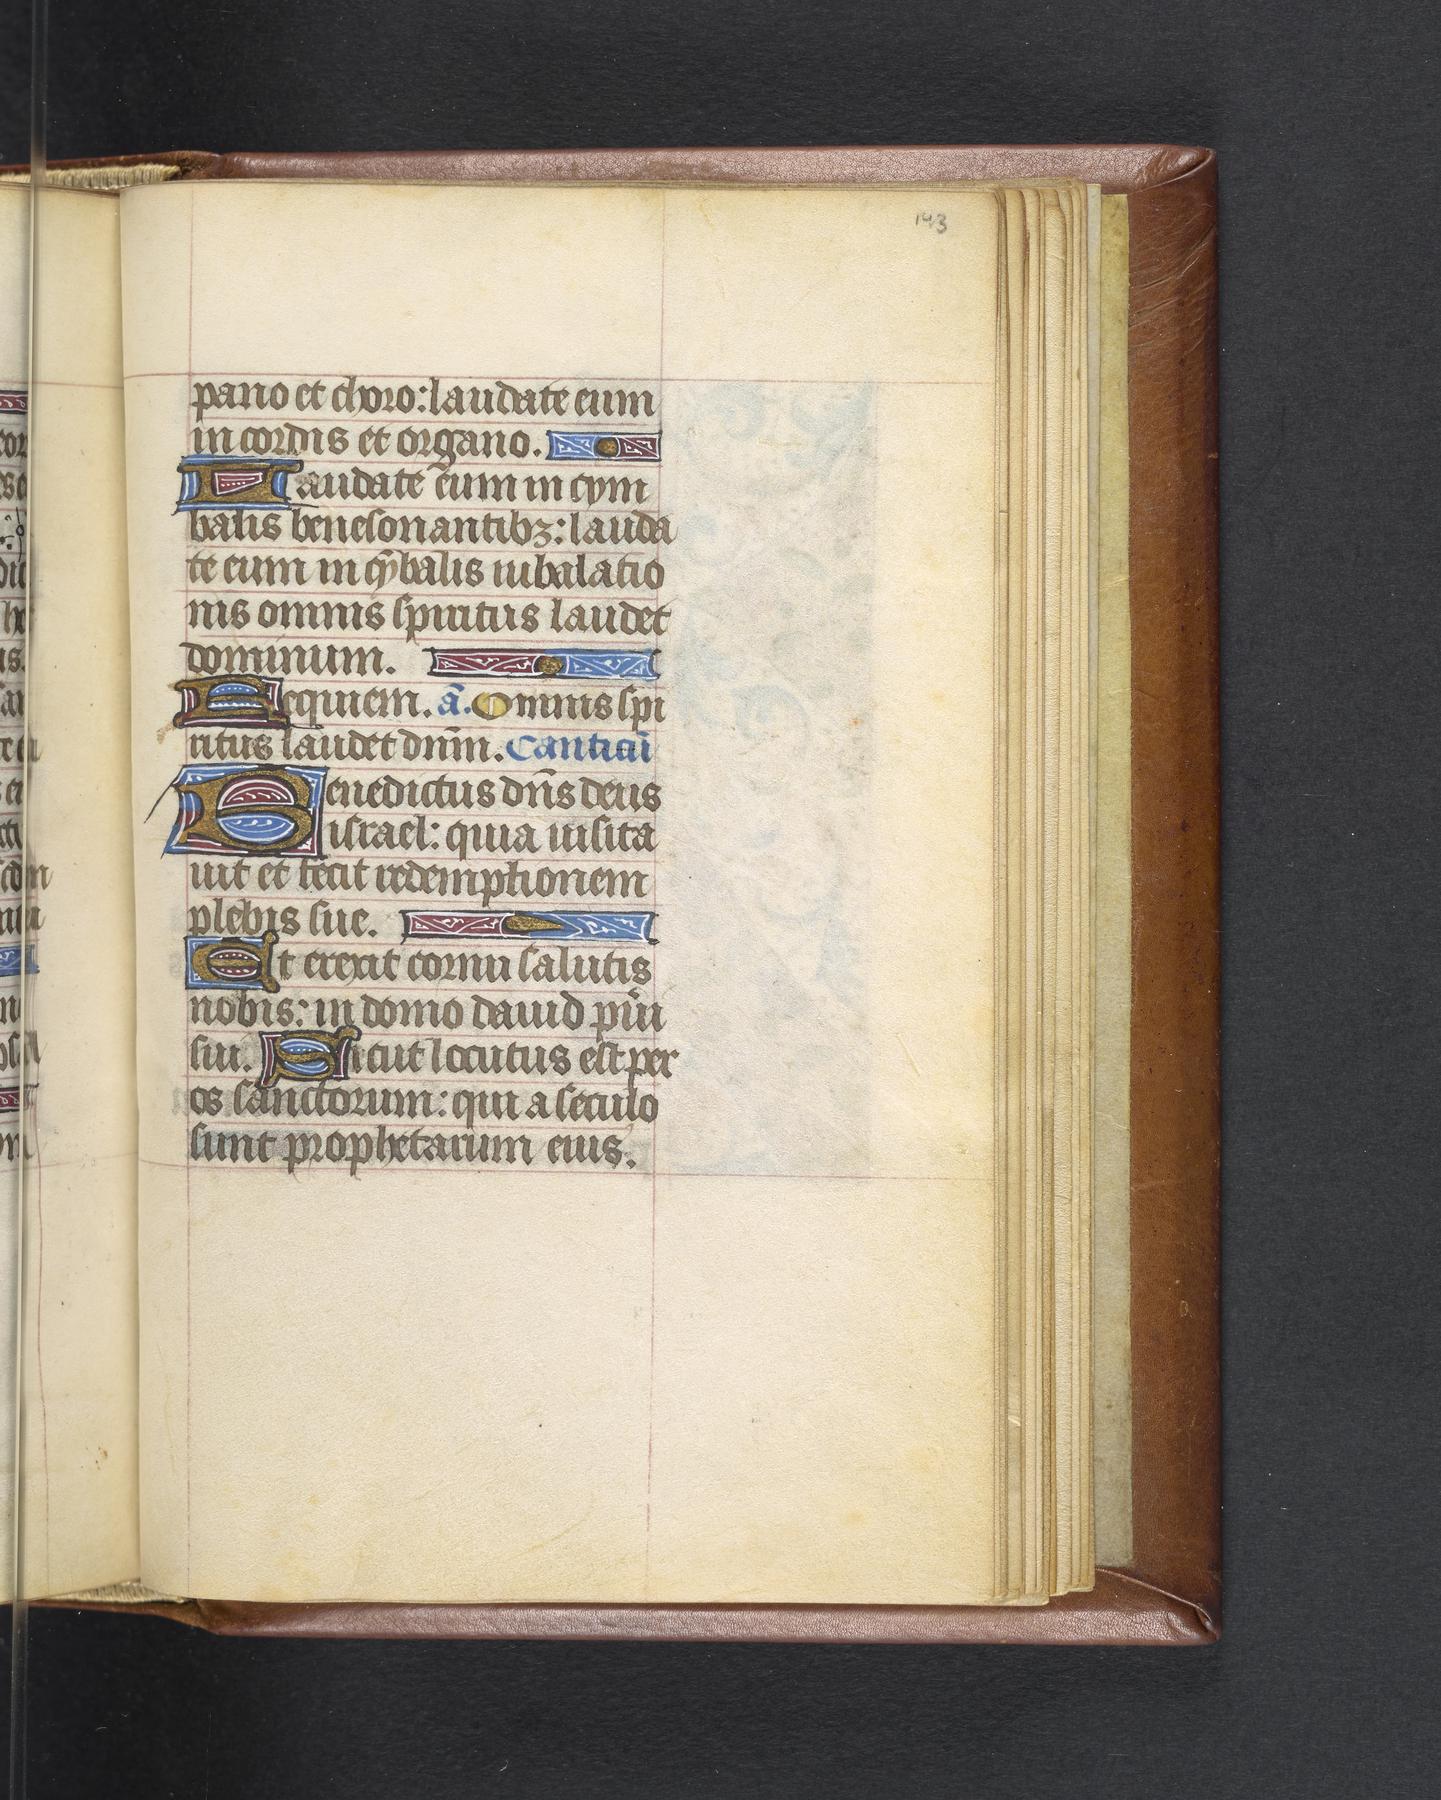 143
pano et choro: laudate eum
in cordis et organo.
Laudate eum in cym
balis benesonantibꝫ: lauda
te eum in cỹbalis iubalatio
nis omnis spiritus laudet
dominum.
Requiem. ã. Omnis spi
ritus laudet dñm. Canticũ
Benedictus dñs deus
israel: quia uisita
uit et fecit redemptionem
plebis sue.
Et erexit cornu salutis
nobis: in domo dauid pũi
sui. Sicut locutus est per
os sanctorum: qui a seculo
sunt prophetarum eius.